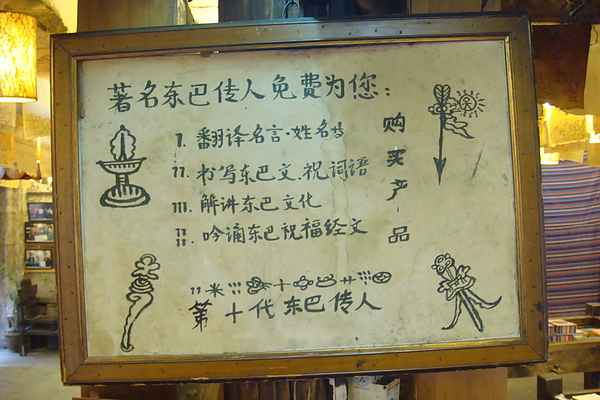 著名东巴传人免费为您:
1. 翻译名言·姓名等
11. 书写东巴文.祝词语
111. 解讲东巴文化
吟诵东巴祝福经文
购买产品
第十代东巴传人